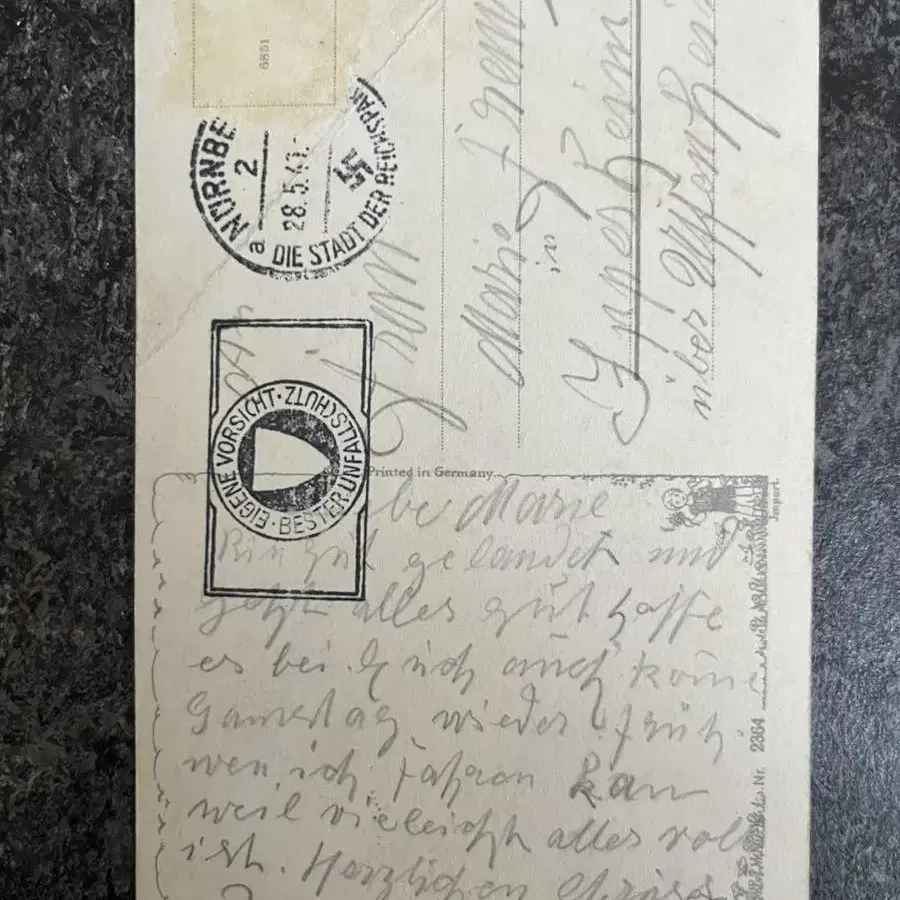 6851
NÜRNBE
2
a
28.5.43.
DIE STADT DER REICHSPAR
EIGENE VORSICHT · BESTER UNFALLSCHUTZ ·
Marie
in
Ippesheim
über Uffenheim
Printed in Germany
be Marie
Bin gut gelandet und
geht alles gut hoffe
es bei Euch auch kome
Samstag wieder früh
wen ich fahren kan
weil vieleicht alles voll
ist. Herzlichen
Import.
Nr. 2364